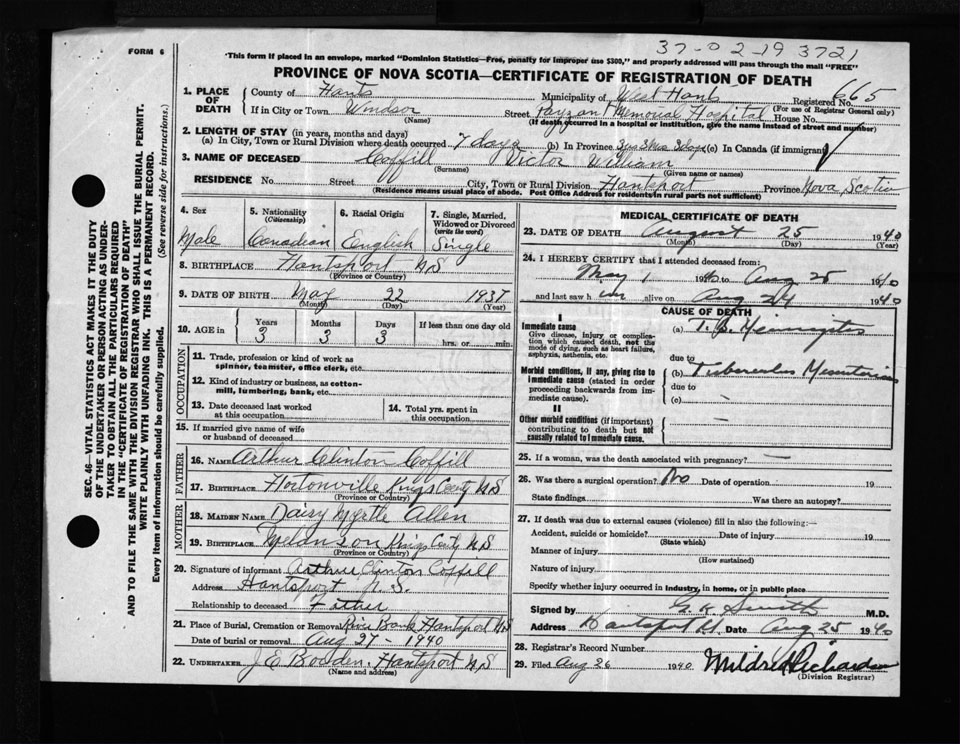 37-02-19 3721
FORM 6
"This form if placed in an envelope, marked "Dominion Statistics—Free, penalty for improper use $300," and properly addressed will pass through the mail "FREE"
PROVINCE OF NOVA SCOTIA—CERTIFICATE OF REGISTRATION OF DEATH
SEC. 46—VITAL STATISTICS ACT MAKES IT THE DUTY
OF THE UNDERTAKER OR PERSON ACTING AS UNDER-
TAKER TO OBTAIN ALL THE PARTICULARS REQUIRED
IN THE "CERTIFICATE OF REGISTRATION OF DEATH"
AND TO FILE THE SAME WITH THE DIVISION REGISTRAR WHO SHALL ISSUE THE BURIAL PERMIT.
WRITE PLAINLY WITH UNFADING INK. THIS IS A PERMANENT RECORD.
Every item of Information should be carefully supplied. (See reverse side for instructions.)
1. PLACE OF DEATH
County of Hants Municipality of West Hants Registered No. 665
(For use of Registrar General only)
If in City or Town Windsor Street Payzant Memorial Hospital House No.
(Name) (If death occurred in a hospital or institution, give the name instead of street and number)
2. LENGTH OF STAY (in years, months and days)
(a) In City, Town or Rural Division where death occurred 7 days (b) In Province 3 yrs 3 mos 3 days (c) In Canada (if immigrant)
3. NAME OF DECEASED Coffill Victor William
(Surname) (Given name or names)
RESIDENCE No. Street City, Town or Rural Division Hantsport Province Nova Scotia
(Residence means usual place of abode. Post Office Address for residents in rural parts not sufficient)
4. Sex 5. Nationality (Citizenship) 6. Racial Origin 7. Single, Married, Widowed or Divorced (write the word)
Male Canadian English Single
8. BIRTHPLACE Hantsport NS
(Province or Country)
9. DATE OF BIRTH May 22 1937
(Month) (Day) (Year)
10. AGE in Years Months Days If less than one day old
3 3 3 hrs. or min.
OCCUPATION
11. Trade, profession or kind of work as
spinner, teamster, office clerk, etc.
12. Kind of industry or business, as cotton-
mill, lumbering, bank, etc.
13. Date deceased last worked
at this occupation
14. Total yrs. spent in
this occupation
15. If married give name of wife
or husband of deceased
FATHER
16. NAME Arthur Clinton Coffill
17. BIRTHPLACE Hortonville Kings Cnty NS
(Province or Country)
MOTHER
18. MAIDEN NAME Daisy Myrtle Allen
19. BIRTHPLACE Melanson Kings Cnty NS
(Province or Country)
20. Signature of informant Arthur Clinton Coffill
Address Hantsport N.S.
Relationship to deceased Father
21. Place of Burial, Cremation or Removal River Bank Hantsport NS
Date of burial or removal Aug 27 - 1940
22. UNDERTAKER J E Bodden. Hantsport NS
(Name and address)
MEDICAL CERTIFICATE OF DEATH
23. DATE OF DEATH August 25 1940
(Month) (Day) (Year)
24. I HEREBY CERTIFY that I attended deceased from:
May 1 1940 to Aug 25 1940
and last saw him alive on Aug 24 1940
CAUSE OF DEATH
I
Immediate cause
Give disease, injury or complica-
tion which caused death, not the
mode of dying, such as heart failure,
asphyxia, asthenia, etc.
(a) T.B. Meningitis
due to
Morbid conditions, if any, giving rise to
immediate cause (stated in order
proceeding backwards from im-
mediate cause).
(b) Tuberculos
due to
(c) —
II
Other morbid conditions (if important)
contributing to death but not
causally related to immediate cause.
25. If a woman, was the death associated with pregnancy? —
26. Was there a surgical operation? No Date of operation 19
State findings Was there an autopsy?
27. If death was due to external causes (violence) fill in also the following:—
Accident, suicide or homicide? Date of injury 19
(State which)
Manner of injury
(How sustained)
Nature of injury
Specify whether injury occurred in industry, in home, or in public place
Signed by G K Smith M.D.
Address Hantsport Date Aug 25 1940
28. Registrar's Record Number
29. Filed Aug 26 1940 Mildred Richardson
(Division Registrar)